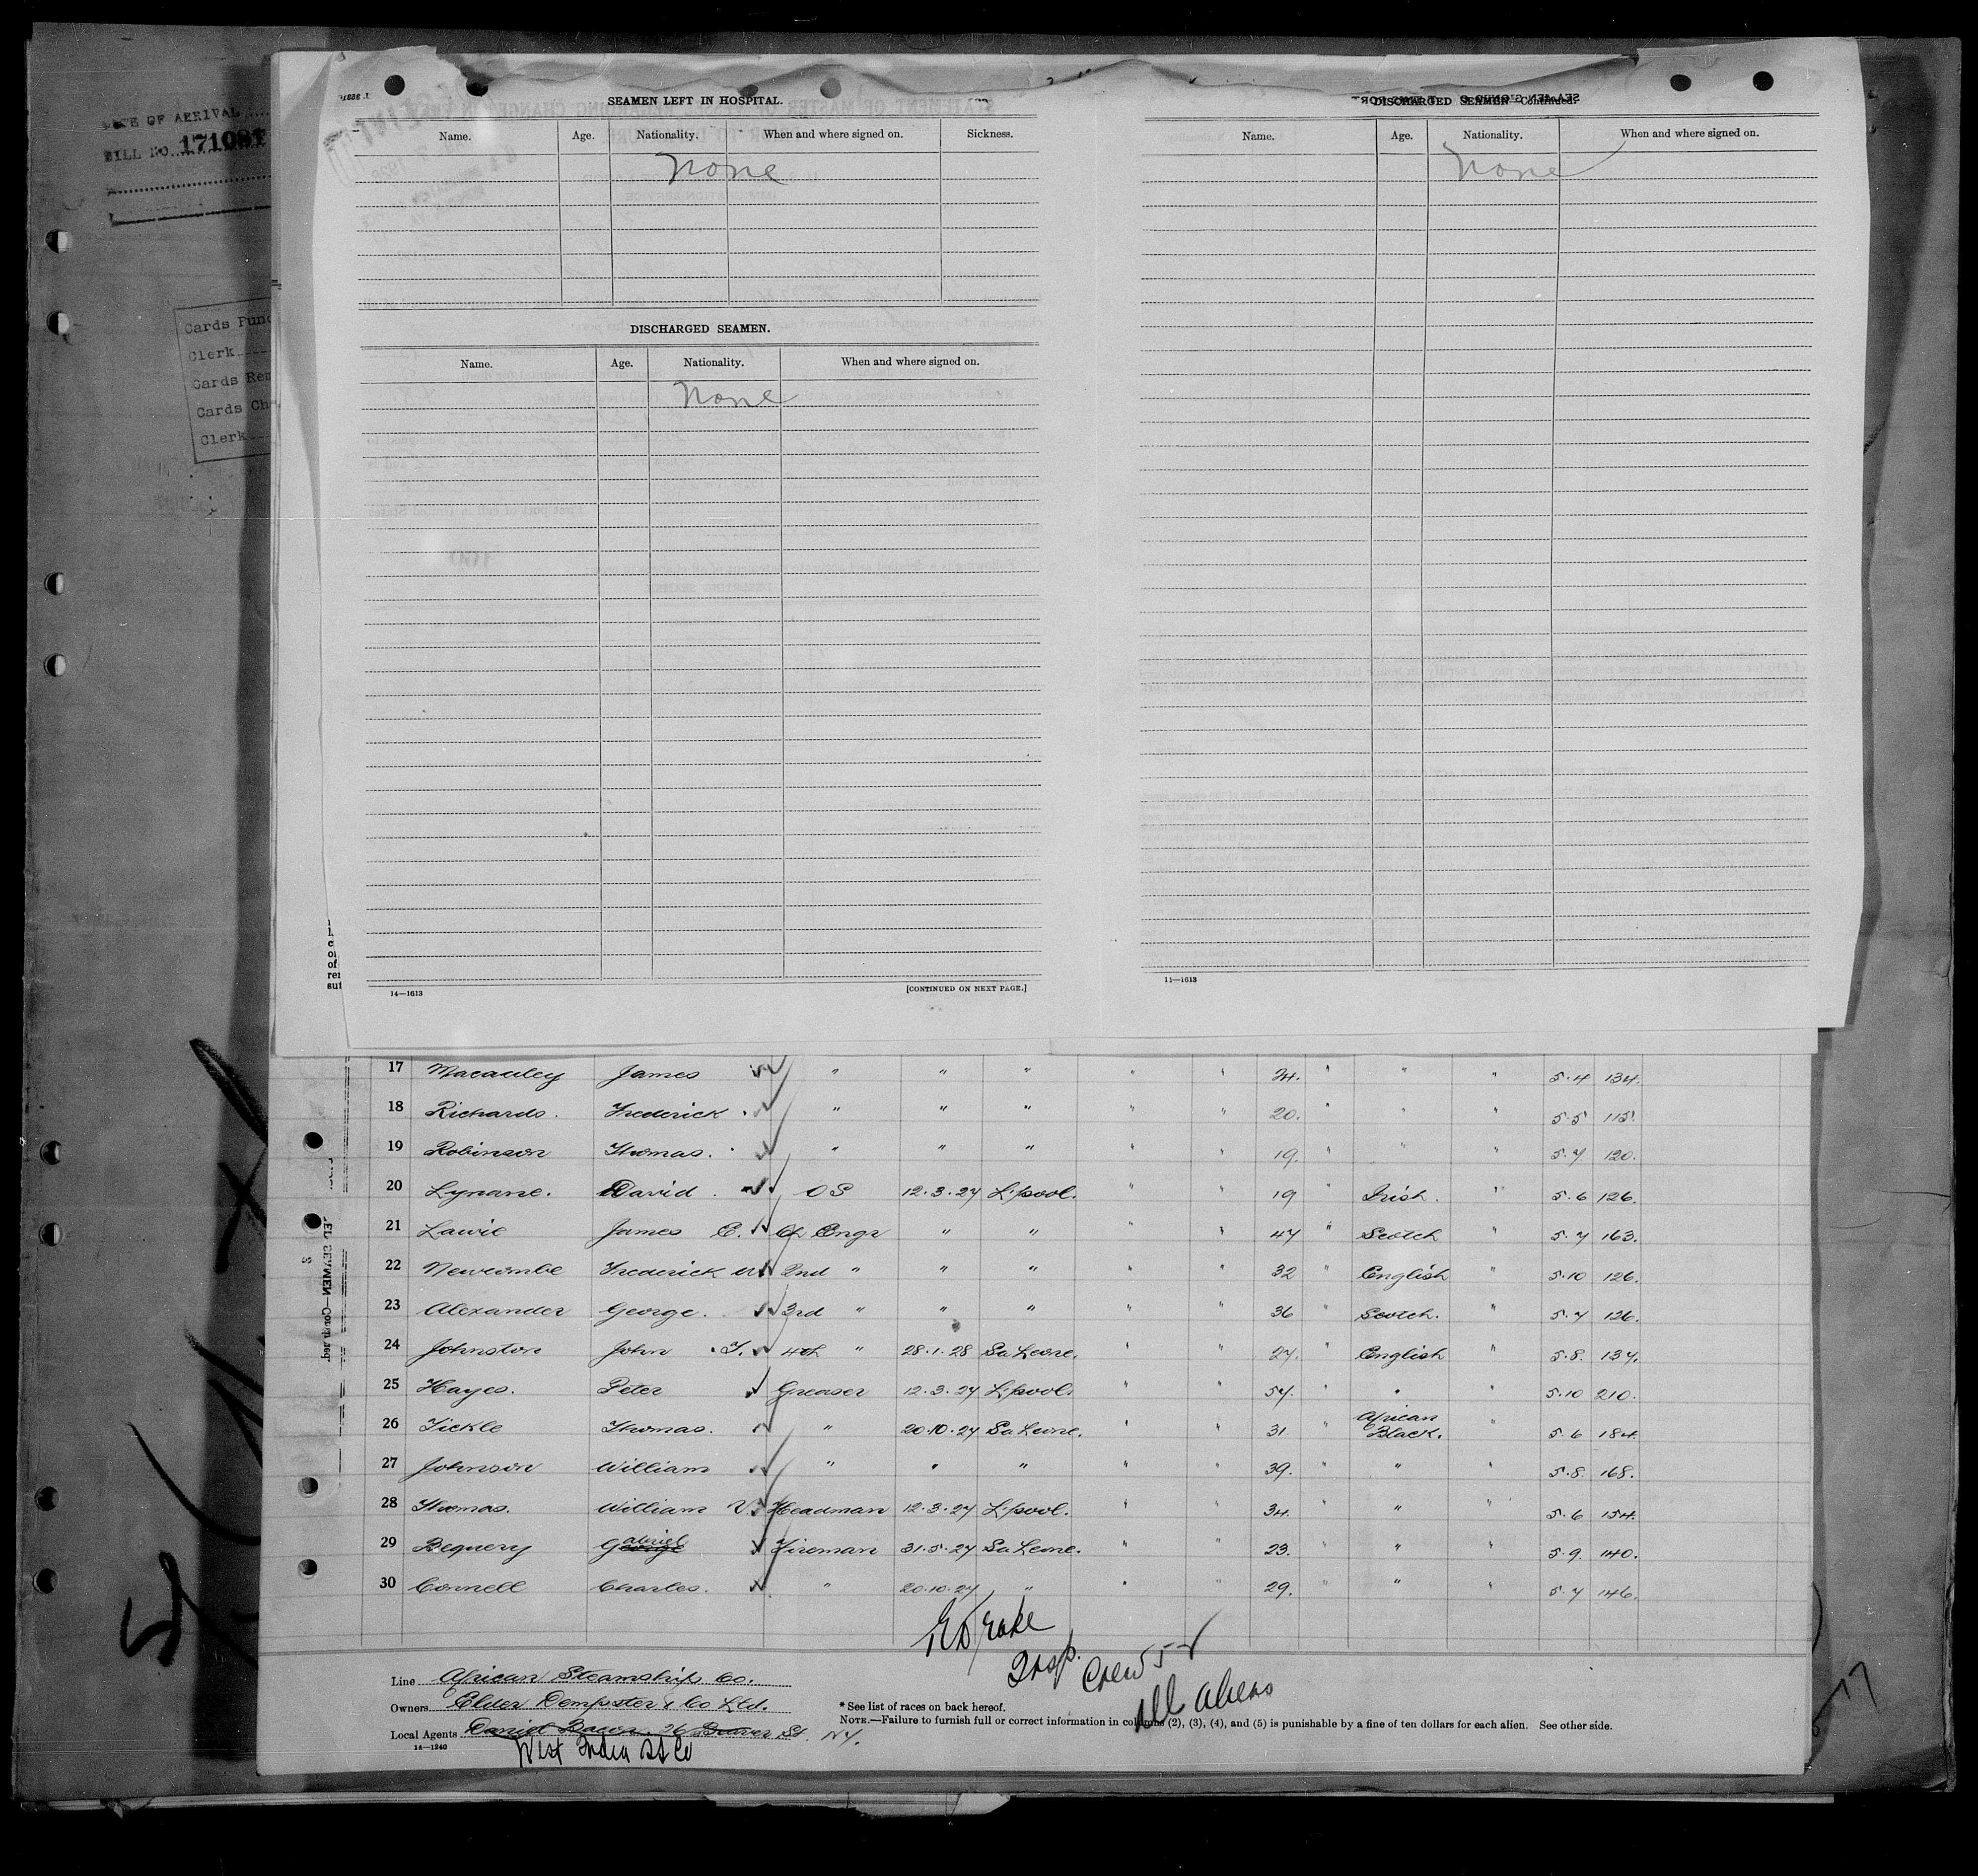 DATE OF ARRIVAL
BILL NO. 171081
Cards Pun
Clerk
Cards Re
Cards Ch
Clerk
SEAMEN LEFT IN HOSPITAL.
Name. Age. Nationality. When and where signed on. Sickness.
None
DISCHARGED SEAMEN.
Name. Age. Nationality. When and where signed on.
None
14—1613 [CONTINUED ON NEXT PAGE.]
DISCHARGED SEAMEN—Continued.
Name. Age. Nationality. When and where signed on.
None
11—1613
17 Macauley James " " " " " 24. " " " 5.4 134.
18 Richards. Frederick " " " " " 20. " " " 5.5 115.
19 Robinson Thomas. " " " " " 19. " " " 5.7 120.
20 Lynane. David. OS 12.3.27 L'pool. " " 19 " Irish. " 5.6 126.
21 Lawie James C. Ch Engr " " " " 47 " Scotch " 5.7 163.
22 Newcombe Frederick W 2nd " " " " " 32 " English " 5.10 126.
23 Alexander George. 3rd " " " " " 36 " Scotch. " 5.7 126.
24 Johnston John T. 4th " 28.1.28 Sa Leone. " " 27. " English " 5.8. 137.
25 Hayes. Peter Greaser 12.3.27 L'pool. " " 57. " " " 5.10 210.
26 Tickle Thomas. " 20.10.27 Sa Leone. " 31 " African Black. " 5.6 184.
27 Johnson William " " " " " 39. " " " 5.8. 168.
28 Thomas. William V. Headman 12.3.27 L'pool. " " 34. " " " 5.6 154.
29 Requery Gabriel Fireman 31.5.27 Sa Leone. " " 23. " " " 5.9. 140.
30 Connell Charles. " 20.10.27 " " " 29. " " " 5.7 146.
Insp. Crew 52
All Aliens
Line African Steamship Co.
Owners Elder Dempster & Co Ltd.
Local Agents Daniel Bacon. 26 Beaver St. NY.
West India SS Co
14—1240
* See list of races on back hereof.
NOTE.—Failure to furnish full or correct information in columns (2), (3), (4), and (5) is punishable by a fine of ten dollars for each alien. See other side.